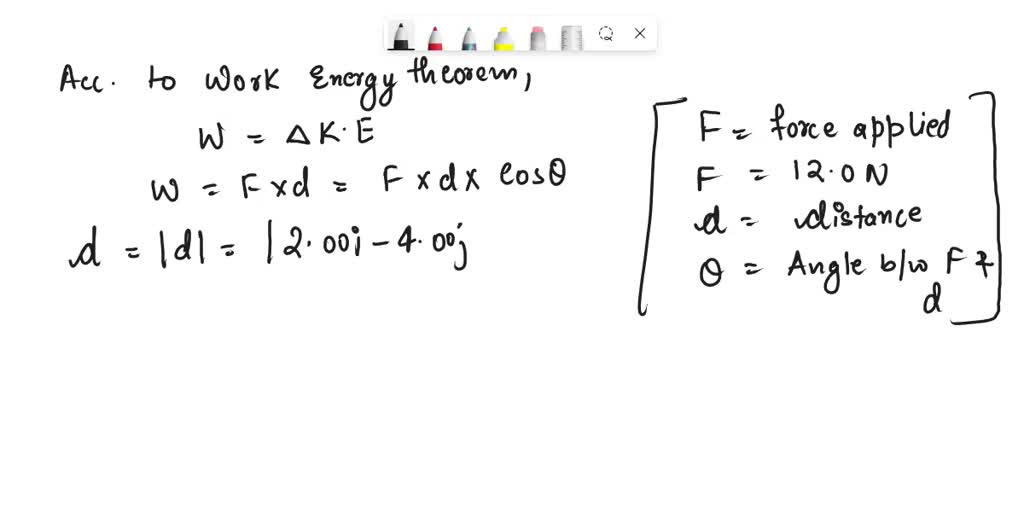 Acc. to Work Energy theorem,
W = ΔK.E
W = F×d = F×d× cosθ
d = |d| = |2.00i - 4.00j
F = force applied
F = 12.0 N
d = distance
θ = Angle b/w F &
d